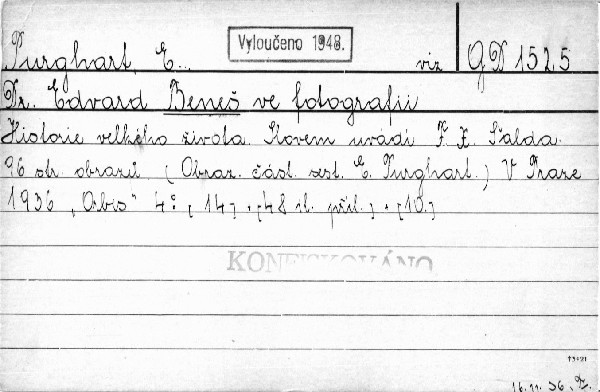 Vyloučeno 1948.
Purghart, E... viz GD 1525
Dr. Edvard Beneš ve fotografii
Historie velkého života. Slovem uvádí F. X. Šalda.
96 str. obrazů. (Obraz. část. sest. E. Purghart.) V Praze
1936 „Orbis“ 4° [14] + [48 il. příl.] + [10.]
KONFISKOVÁNO
16.11.36.